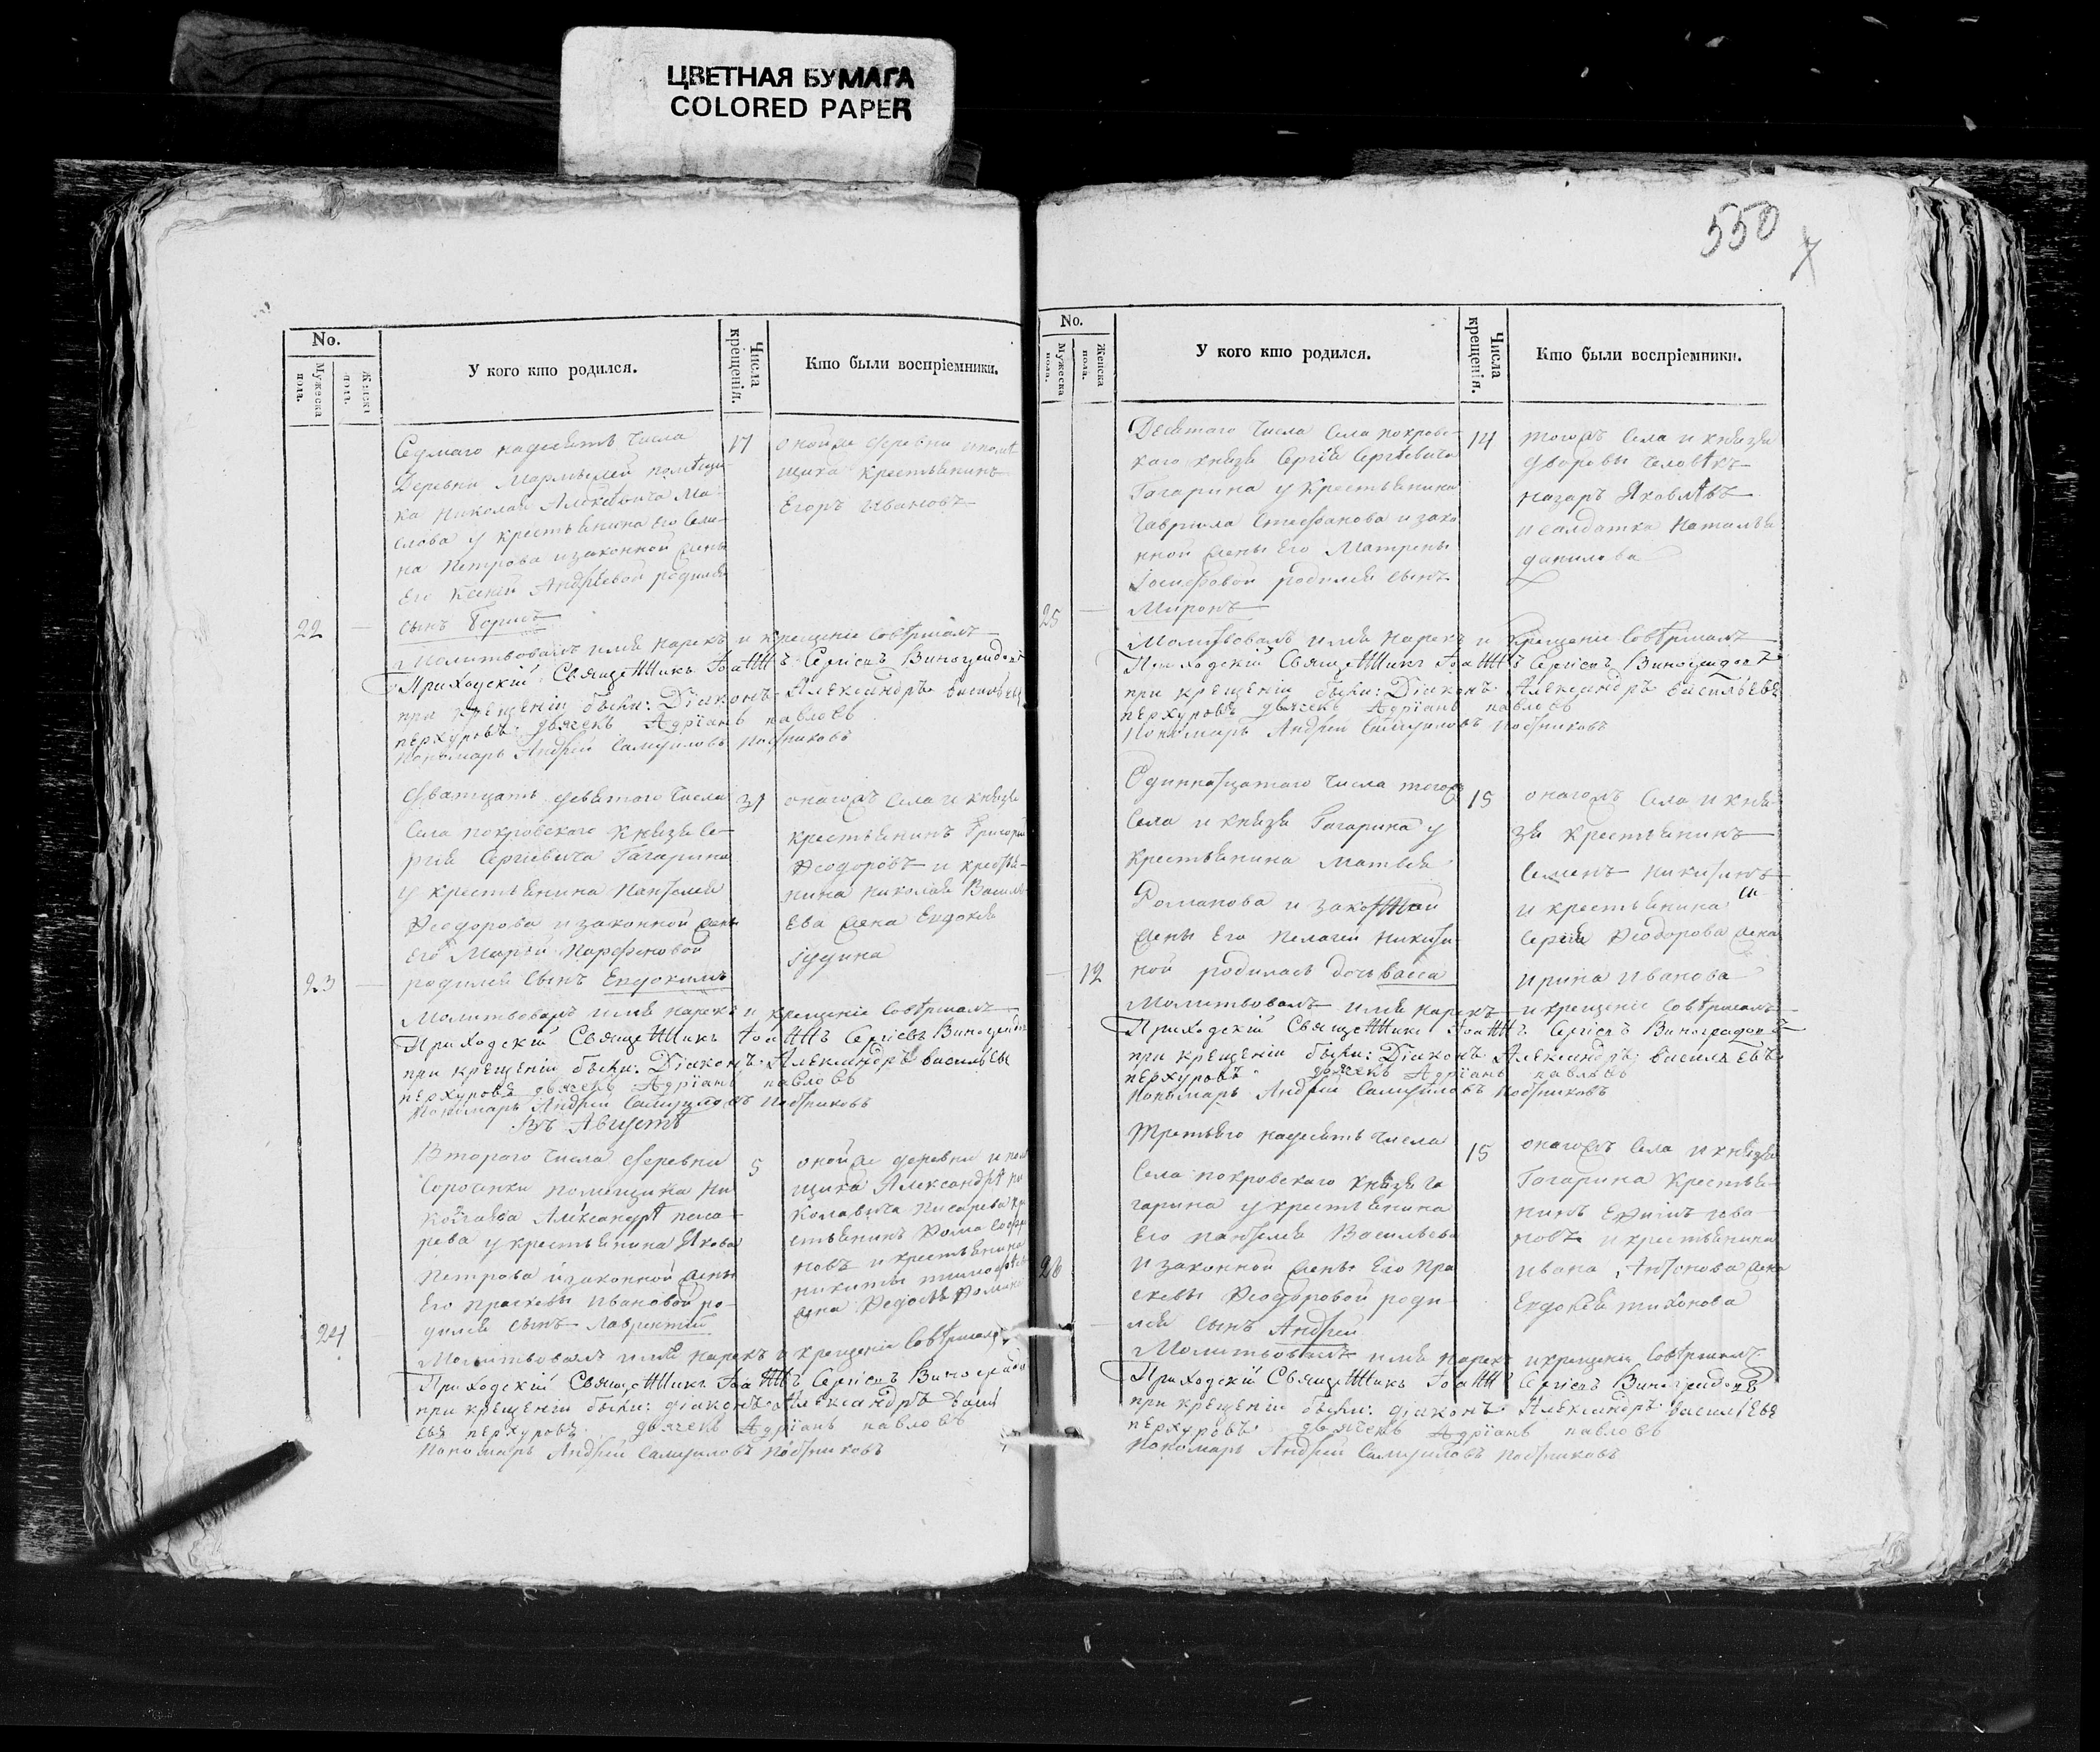 ЦВЕТНАЯ БУМАГА
COLORED PAPER
550
No.
Мужеска пола.
Женска пола.
У кого кто родился.
Числа крещенія.
Кто были воспріемники.
Седмаго надесять числа
Деревни
ка Николая Алексѣевича Ма
слова у крестьянина его Семи
на Петрова и законной жены
его Ксеніи Андрѣевой родился
22
сынъ Борисъ
17
оной же деревни и помѣ
щика крестьянинъ
Егоръ Ивановъ
Молитвовалъ имя нарекъ и крещеніе совѣршалъ
Приходскій Священникъ Іоаннъ Сергіевъ Виноградовъ
при крещеніи были: Діаконъ Александръ Васильевъ
перхуровъ дьячекъ Адріанъ павловъ
Пономарь Андрей Самуиловъ Постниковъ
Дватцать девятаго числа
села покровскаго князя Се
ргія Сергіевича Гагарина
у крестьянина Пантелея
Ѳеодорова и законной жены
его Марѳи Парфеновой
23
родился сынъ Евдокимъ
31
онагожъ села и князя
крестьянинъ Григорій
Ѳеодоровъ и крестья
нина Николая Василь
ева жена Евдокія
Іудина
Молитвовалъ имя нарекъ и крещеніе совѣршалъ
Приходскій Священникъ Іоаннъ Сергіевъ Виноградовъ
при крещеніи были: Діаконъ Александръ Васильевъ
перхуровъ дьячекъ Адріанъ павловъ
Пономарь Андрей Самуиловъ Постниковъ
Въ Августѣ
Втораго числа деревни
Сорочинки помѣщика Ни
Александра писа
рева у крестьянина Якова
Петрова и законной жены
его Прасковьи Ивановой ро
24
дился сынъ Лаврентій
5
оной же деревни и помѣ
щика Александра Ни
колавича Писарева кре
стьянинъ Ѳома
новъ и крестьянина
никиты тимоѳѣева
жена Ѳедосья
Молитвовалъ имя нарекъ и крещеніе совѣршалъ
Приходскій Священникъ Іоаннъ Сергіевъ Виноградовъ
при крещеніи были: діаконъ Александръ Васил
евъ перхуровъ дьячекъ Адріанъ павловъ
Пономарь Андрей Самуиловъ Постниковъ
No.
Мужеска пола.
Женска пола.
У кого кто родился.
Числа крещенія.
Кто были воспріемники.
Десятаго числа села покровс
каго князя Сергія Сергѣевича
Гагарина у крестьянина
Гавріила Стефанова и зако
нной жены его Матрены
Іосифовой родился сынъ
25
Миронъ
14
тогожъ села и князя
дворовый человѣкъ
назаръ Яковлѣвъ
и салдатка Наталья
данилова
Молитвовалъ имя нарекъ и крещеніе совѣршалъ
Приходскій Священникъ Іоаннъ Сергіевъ Виноградовъ
при крещеніи были: Діаконъ Александръ Васильевъ
перхуровъ дьячекъ Адріанъ павловъ
Пономарь Андрей Самуиловъ Постниковъ
Одиннатцатаго числа тогожъ
села и князя Гагарина у
крестьянина Матвея
Романова и законной
жены его Пелагеи Никити
12
ной родилась дочь васса
15
онагожъ села и кня
зя крестьянинъ
Семенъ Никитинъ
и крестьянина
Сергія Ѳеодорова жена
ирина иванова
Молитвовалъ имя нарекъ и крещеніе совѣршалъ
Приходскій Священникъ Іоаннъ Сергіевъ Виноградовъ
при крещеніи были: Діаконъ Александръ Васильевъ
перхуровъ дьячекъ Адріанъ павловъ
Пономарь Андрей Самуиловъ Постниковъ
Третьяго надесять числа
села покровскаго князя Га
гарина у крестьянина
его пантелея Васильева
26
и законной жены его Пра
сковьи Ѳеодоровой роди
лся сынъ Андрей
15
онагожъ села и князя
Гагарина крестья
нинъ Ефимъ ива
новъ и крестьянина
ивана Антонова жена
Евдокія тихонова
Молитвовалъ имя нарекъ и крещеніе совѣршалъ
Приходскій Священникъ Іоаннъ Сергіевъ Виноградовъ
при крещеніи были: діаконъ Александръ Васильевъ
перхуровъ дьячекъ Адріанъ павловъ
Пономарь Андрей Самуиловъ Постниковъ